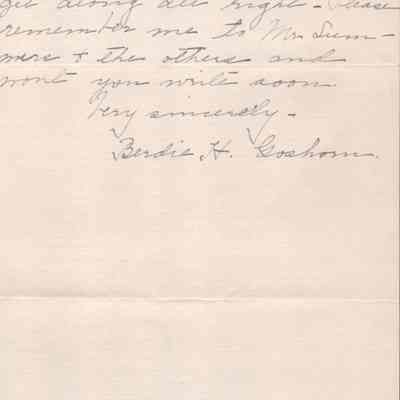 get along all right - Please
remember me to Mr. Sum-
mers & the others and
wont you write soon
Very sincerely -
Berdie H. Goshorn.